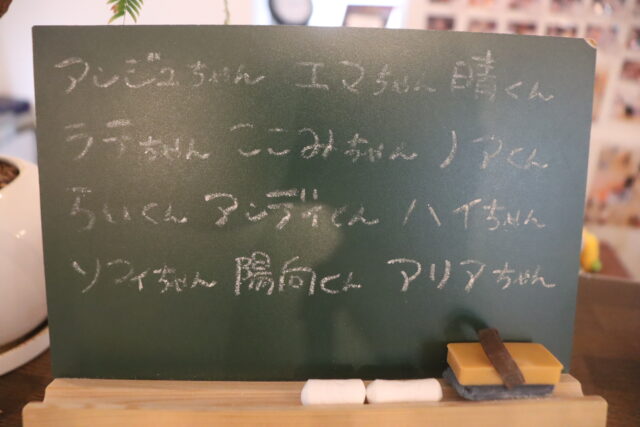 アンジュちゃん エマちゃん 晴くん
ラテちゃん ここみちゃん ノアくん
らいくん アンディくん ハイちゃん
ソフィちゃん 陽向くん アリアちゃん